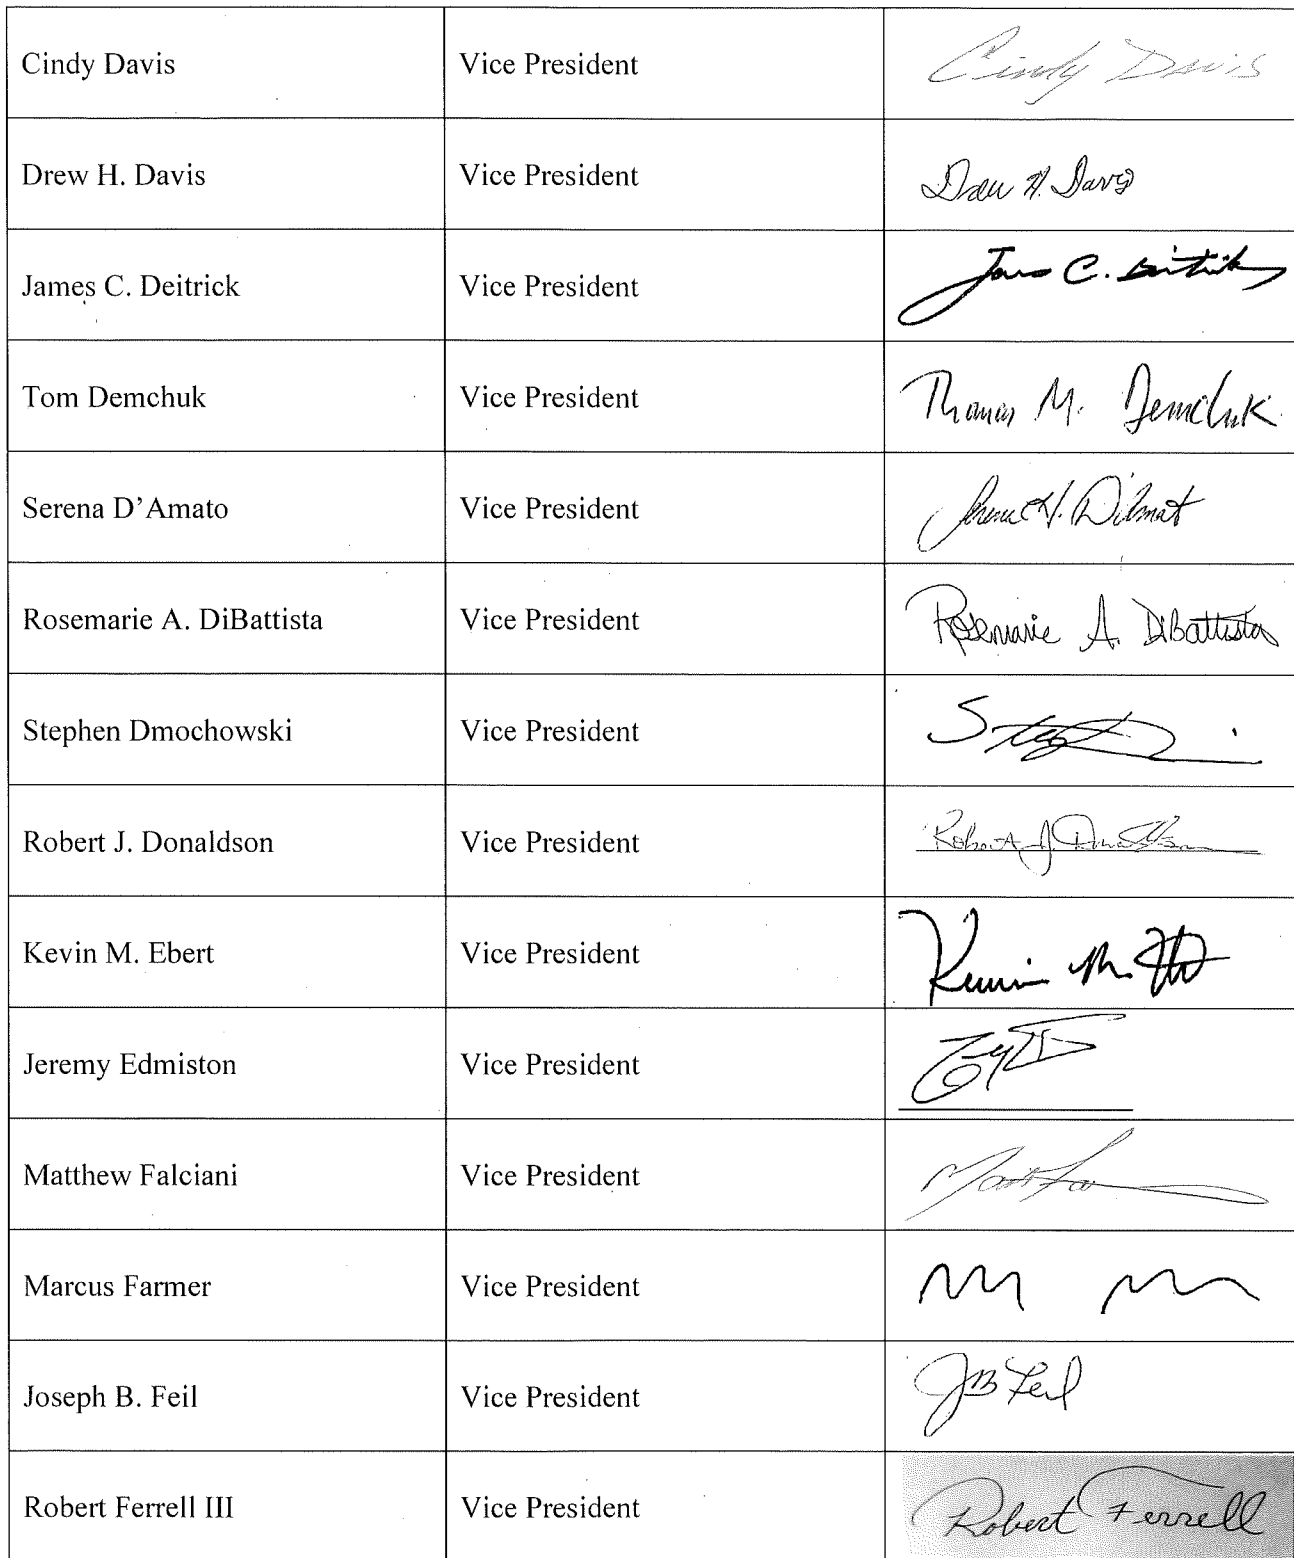 Cindy Davis Vice President Cindy Davis
Drew H. Davis Vice President Drew H. Davis
James C. Deitrick Vice President James C. Deitrick
Tom Demchuk Vice President Thomas M. Demchuk
Serena D'Amato Vice President
Rosemarie A. DiBattista Vice President Rosemarie A. DiBattista
Stephen Dmochowski Vice President
Robert J. Donaldson Vice President Robert J. Donaldson
Kevin M. Ebert Vice President Kevin M.
Jeremy Edmiston Vice President
Matthew Falciani Vice President
Marcus Farmer Vice President
Joseph B. Feil Vice President JB Feil
Robert Ferrell III Vice President Robert Ferrell